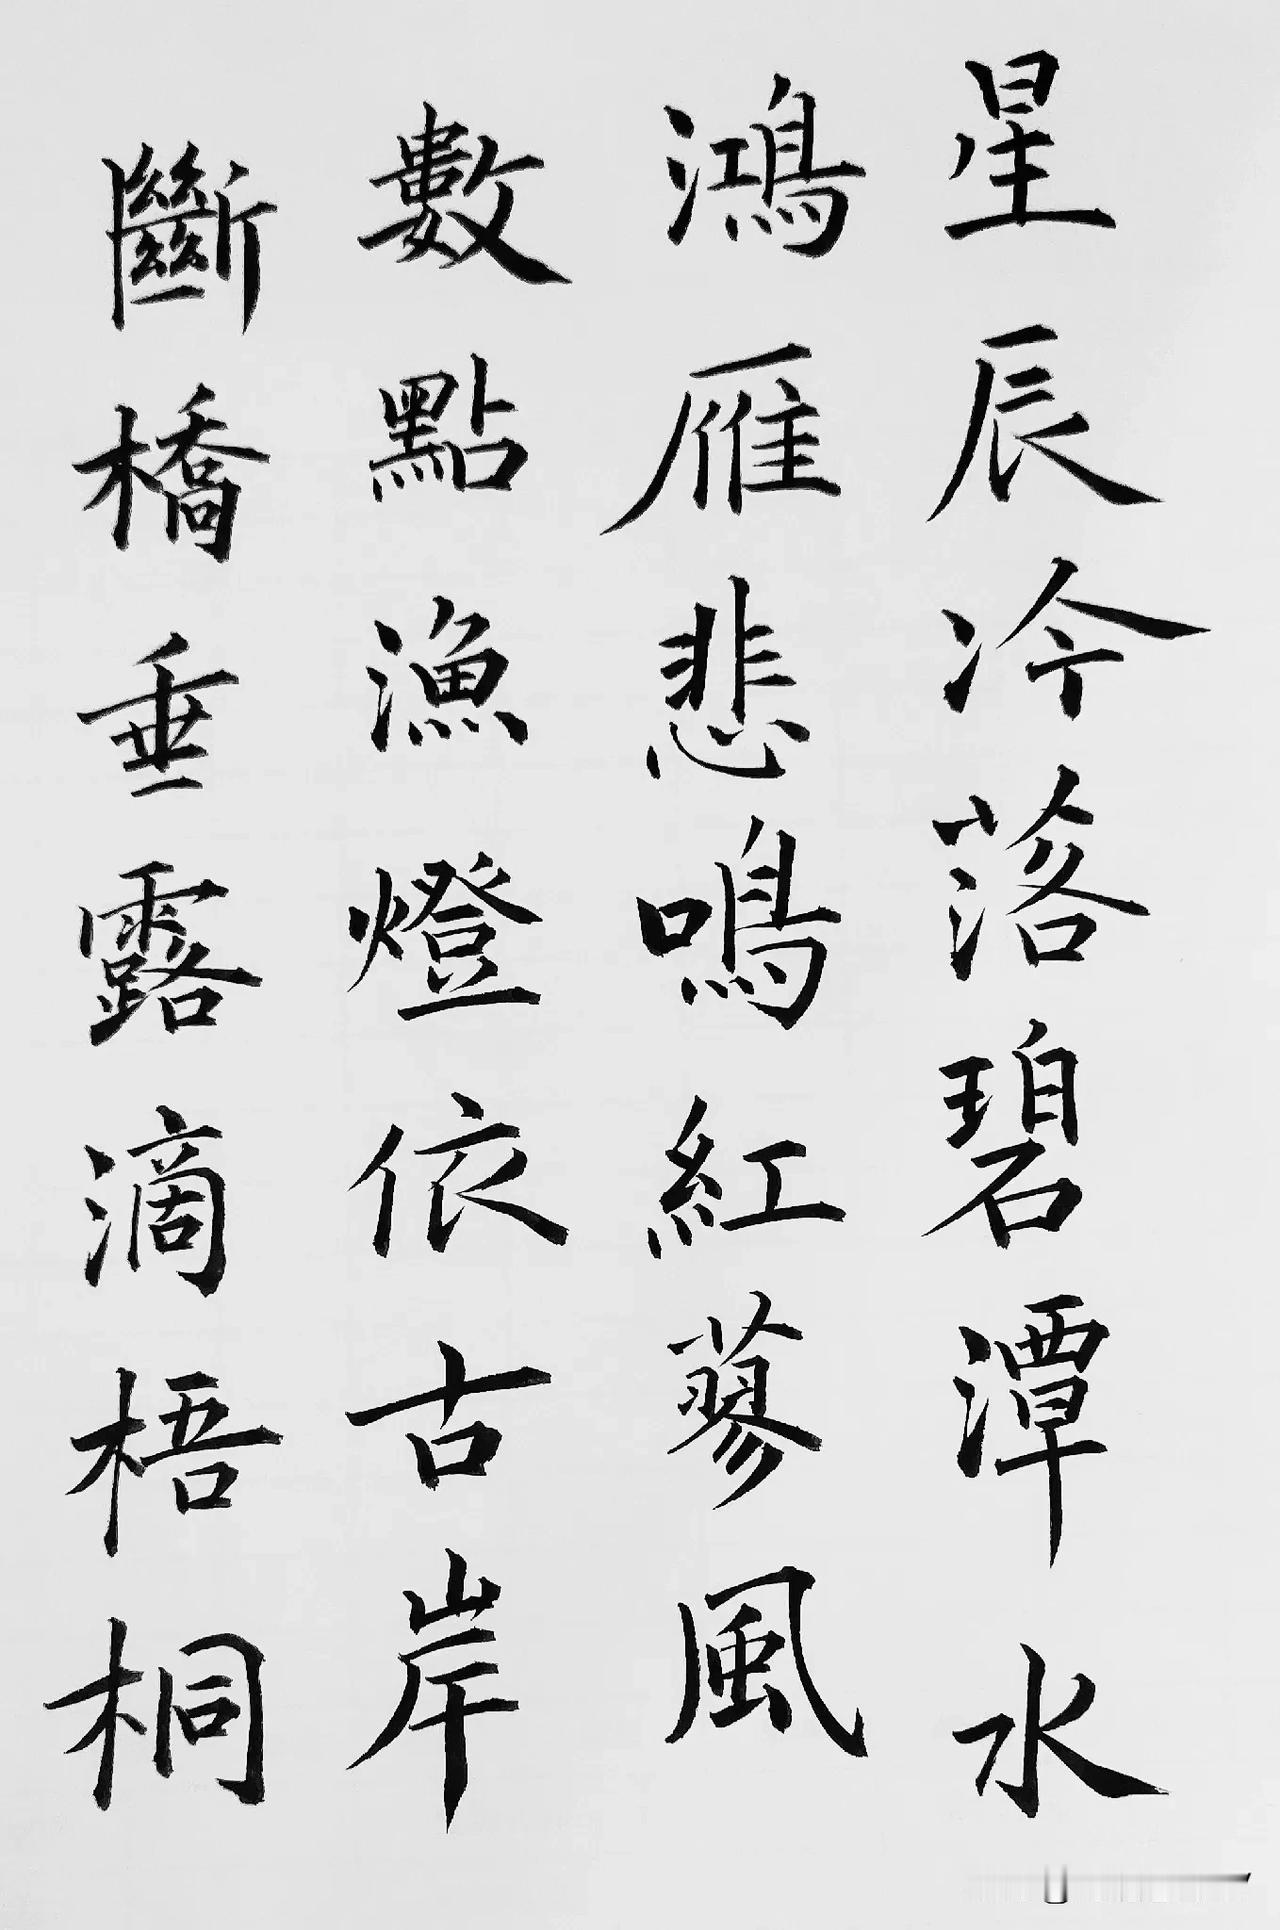 星辰冷落碧潭水
鴻雁悲鳴紅蓼風
數點漁燈依古岸
斷橋垂露滴梧桐